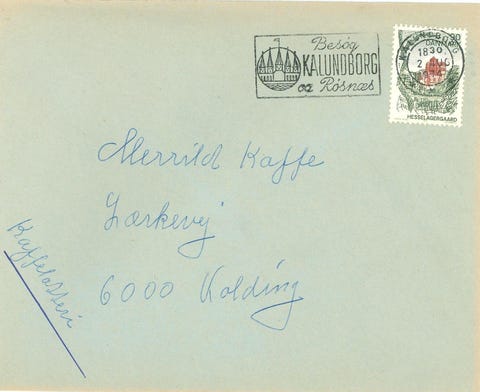 Besøg
KALUNDBORG
og RöSnæs
KALUNDBORG
1830
90
DANMARK
HESSELAGERGAARD
Merrild Kaffe
Lærkevej
6000 Kolding
Kaffelotteri